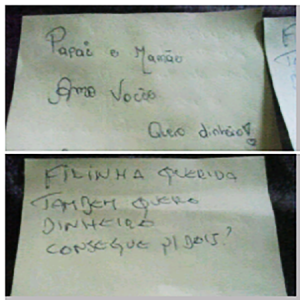 Papai e Mamãe
Amo Vocês
Quero dinheiro!
FILINHA QUERIDA
TAMBEM QUERO
DINHEIRO
CONSEGUE P/ DOIS?